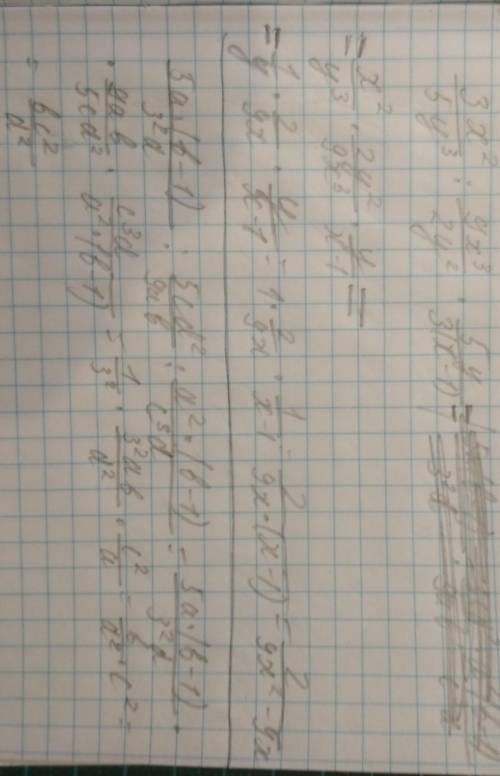 3x² / 5y³ : 9x³ / 2y² · 5y / 3(x-1) =
= x² / y³ · 2y² / 9x³ · y / x-1 =
= 1 / y · 2 / 9x · y / x-1 = 1 · 2 / 9x · 1 / x-1 = 2 / 9x·(x-1) = 2 / 9x²-9x
5a·(b-1) / 3²d : 5cd² / 9ab : a²·(b-1) / c³d = 5a·(b-1) / 3²d ·
· 9ab / 5cd² · c³d / a²·(b-1) = 1 / 3² · 3²ab / d² · c² / a = b / d² · c² =
= bc² / d²